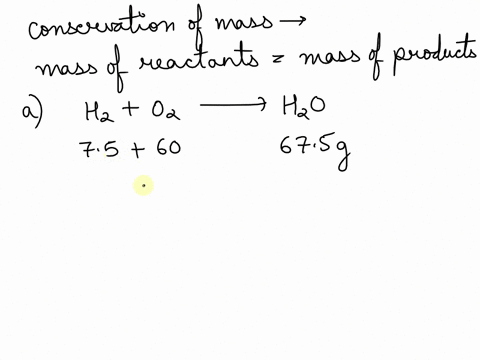 conservation of mass →
mass of reactants = mass of products
a) H₂ + O₂ ⟶ H₂O
7.5 + 60 67.5g